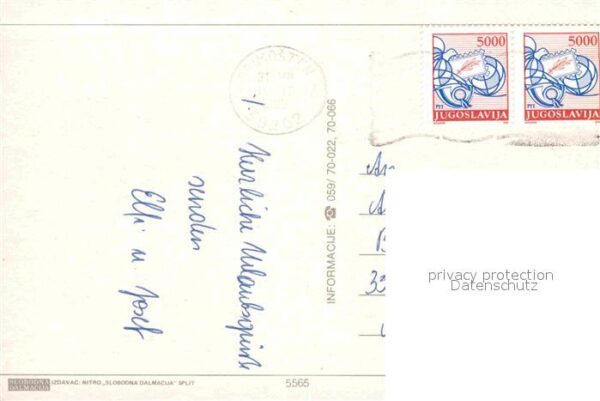 5000
PTT
JUGOSLAVIJA
5000
PTT
JUGOSLAVIJA
Herzliche Urlaubsgrüße
senden
Elfi u. Josef
INFORMACIJE: ☎ 059/ 70-022, 70-066
privacy protection
Datenschutz
SLOBODNA
DALMACIJA
IZDAVAČ: NITRO „SLOBODNA DALMACIJA" SPLIT
5565